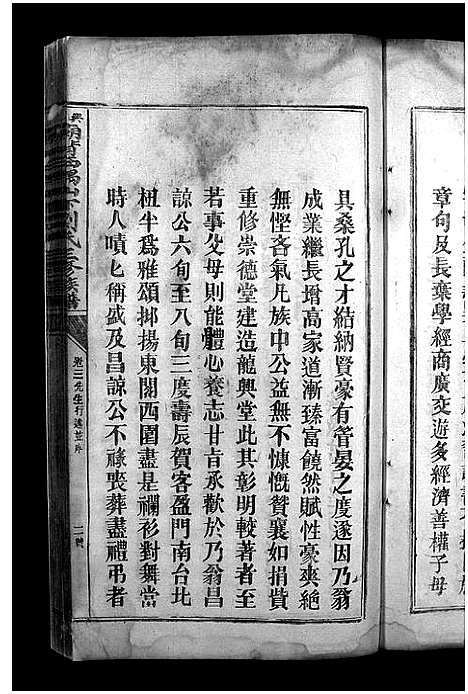 章句及長棄學經商廣交遊多經濟善權子母
具桑孔之才結納賢豪有管晏之度遂因乃翁
成業繼長增高家道漸臻富饒然賦性豪爽絕
無慳吝氣凡族中公益無不慷慨贊襄如捐貲
重修崇德堂建造龍興堂此其彰明較著者至
若事父母則能體心養志甘旨承歡於乃翁昌
諒公六旬至八旬三度壽辰賀客盈門南台北
杻半爲雅頌揶揚東閣西園盡是斕衫對舞當
時人嘖匕稱盛及昌諒公不祿喪葬盡禮弔者
劉氏三修族譜
先生行述並序
二號